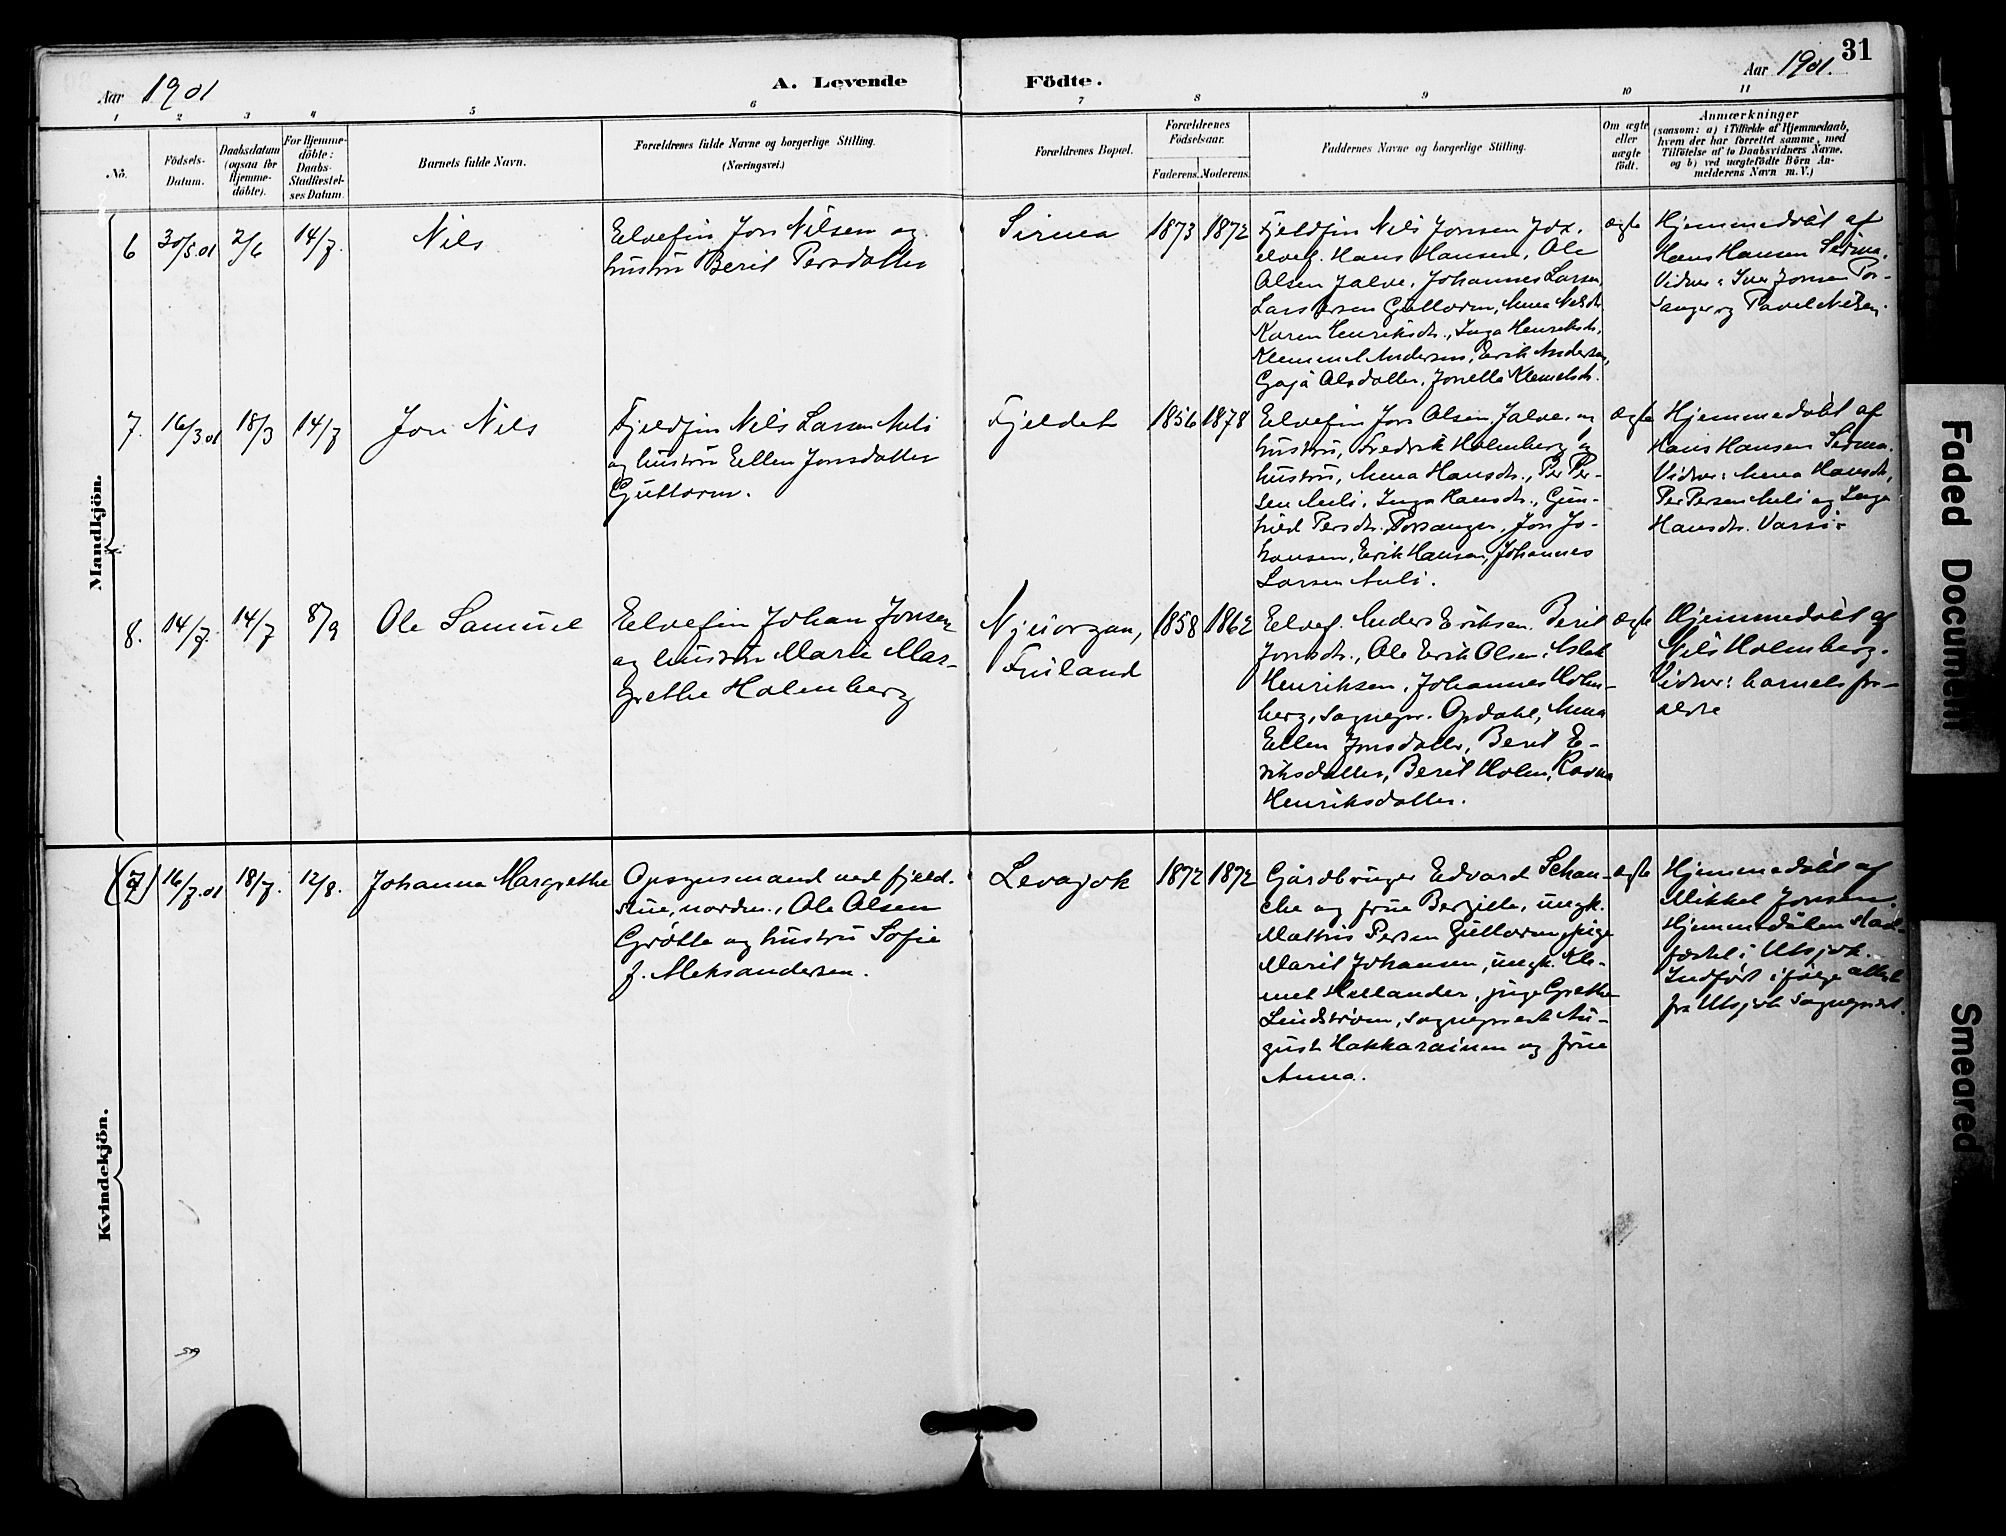 31
Aar 1901
A. Levende Födte.
Aar 1901.
1 2 3 4 5 6 7 8 9 10 11
No.
Födsels-
Datum.
Daabsdatum
(ogsaa for
Hjemme-
döbte).
For Hjemme-
döbte:
Daabs-
Stadfæstel-
ses Datum.
Barnets fulde Navn.
Forældrenes fulde Navne og borgerlige Stilling.
(Næringsvei.)
Forældrenes Bopæl.
Forældrenes
Födselsaar.
Faderens. Moderens.
Faddernes Navne og borgerlige Stilling.
Om ægte
eller
uægte
födt.
Anmærkninger
(saasom: a) i Tilfælde af Hjemmedaab,
hvem der har forrettet samme, med
Tilföielse af to Daabsvidners Navne,
og b) ved uægtefödte Börn An-
melderens Navn m. V.)
Mandkjön.
6 30/5.01 2/6 14/7.
Nils
Elvefin Jon Nilsen og
hustru Berit Persdatter
Sirma
1873 1872
Fjeldfin Nils Jonsen
elvef. Hans Hansen, Ole
Olsen Jalve, Johannes Larsen,
Lars Guttorm, Anna Nilsdt.
Karen Henriksdt., Inga Henriksdt.,
Klemmet Andersen, Erik Andersen,
Olsdatter, Klemetsdt.
ægte
Hjemmedöbt af
Hans Hansen Sirma.
Vidner: Iver Jonsen Por-
sanger og Pavel Nilsen.
7. 16/3.01 18/3 14/7
Jon Nils
Fjeldfin Nils Larsen Auli
og hustru Ellen Jonsdatter
Guttorm.
Fjeldet
1856 1878
Elvefin Jon Olsen Jalve og
hustru, Fredrik Holmberg og
hustru, Anna Hansdt., Per Per-
sen Auli, Inga Hansdt., Gun-
hild Persdt. Porsanger, Jon Jo-
hansen, Erik Hansen, Johannes
Larsen Auli.
ægte
Hjemmedöbt af
Hans Hansen Sirma.
Vidner: Anna Hansdt.,
Per Persen Auli og Inga
Hansdt.
8. 14/7. 14/7 8/9
Ole Samuel
Elvefin Johan Jonsen
og hustru Marie Mar-
grethe Holmberg
Njuorgan,
Finland
1858 1862
Elvef. Anders Eriksen. Berit
Jonsdt., Ole Erik Olsen, Aslak
Henriksen, Johannes Holm-
berg, sognepr. Opdahl, Anna
Ellen Jonsdatter, Berit E-
riksdatter, Berit Holm, Ravna
Henriksdatter.
ægte
Hjemmedöbt af
Nils Holmberg.
Vidner: barnets for-
ældre
Kvindekjön.
(7) 16/7.01 18/7. 12/8.
Johanna Margrethe
Opsynsmand ved fjeld-
stue, nordm., Ole Olsen
Grötte og hustru Sofie
f. Aleksandersen.
Levajok
1872 1872
Gårdbruger Edvard Schan-
che og frue Bergitte, ungk.
Mathis Persen Guttorm, pige
Marit Johansen, ungk. Kle-
met Hellander, pige Grethe
Lindström, sogneprest Au-
gust Hakkarainen og frue
Anna.
ægte
Hjemmedöbt af
Mikkel Jonsen.
Hjemmedåben stad-
fæstet i Utsjok.
Indfört ifölge attest
fra Utsjok sogneprest.
Faded Document
Smeared